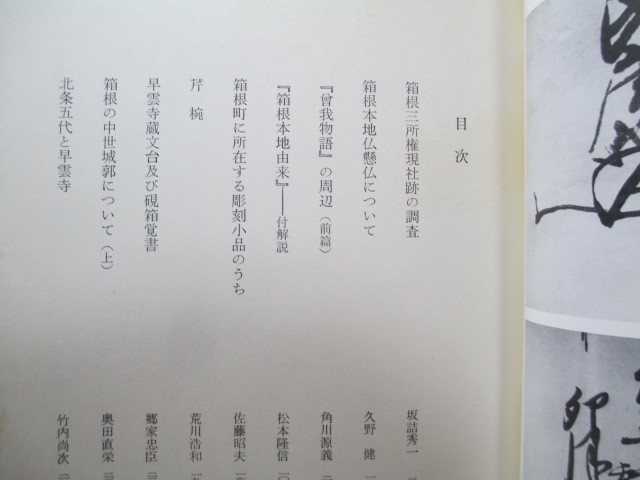 目次
箱根三所権現社跡の調査 坂詰秀一
箱根本地仏懸仏について 久野健
『曾我物語』の周辺（前篇） 角川源義
『箱根本地由来』——付解説 松本隆信
箱根町に所在する彫刻小品のうち 佐藤昭夫
芹椀 荒川浩和
早雲寺蔵文台及び硯箱覚書 郷家忠臣
箱根の中世城郭について（上） 奥田直栄
北条五代と早雲寺 竹内尚次